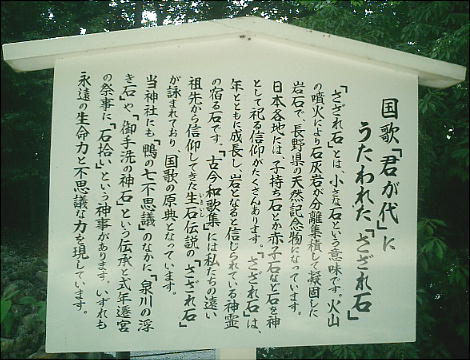 国歌「君が代」に
うたわれた、「さざれ石」
「さざれ石」とは、小さな石という意味です。火山
の噴火により石灰岩が分離集積して凝固した
岩石で、長野県の天然記念物になっています。
日本各地には、子持ち石とか赤子石など石を神
として祀る信仰がたくさんあります。「さざれ石」は、
年とともに成長し、岩となると信じられている神霊
の宿る石です。「古今和歌集」には私たちの遠い
祖先から信仰してきた生石伝説の、「さざれ石」
が詠まれており、国歌の原典となっています。
当神社にも、「鴨の七不思議」のなかに、泉川の浮
き石」や、「御手洗の神石」という伝承と式年遷宮
の祭事に、「石拾い」という神事があります。いずれも
永遠の生命力と不思議な力を現しています。